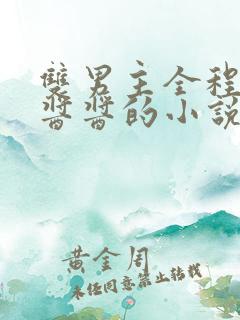 襲男主全程
醬醬的小說
黃金周
未经同意禁止转载